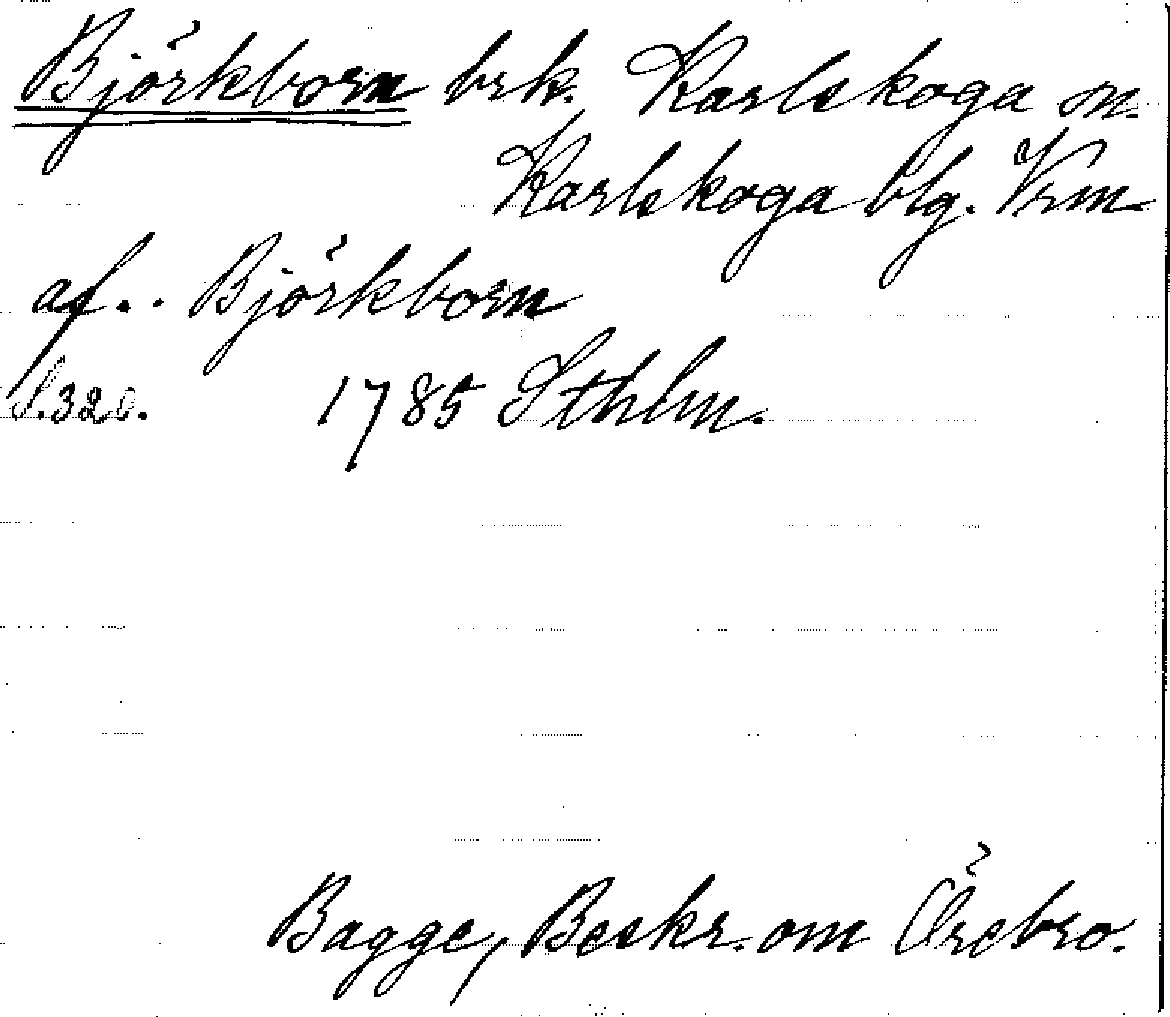 Björkborn brk. Karlskoga sn.
Karlskoga blg. Vrm.
af. . Björkborn
S. 320. 1785 Sthlm.
Bagge, Beskr. om Örebro.